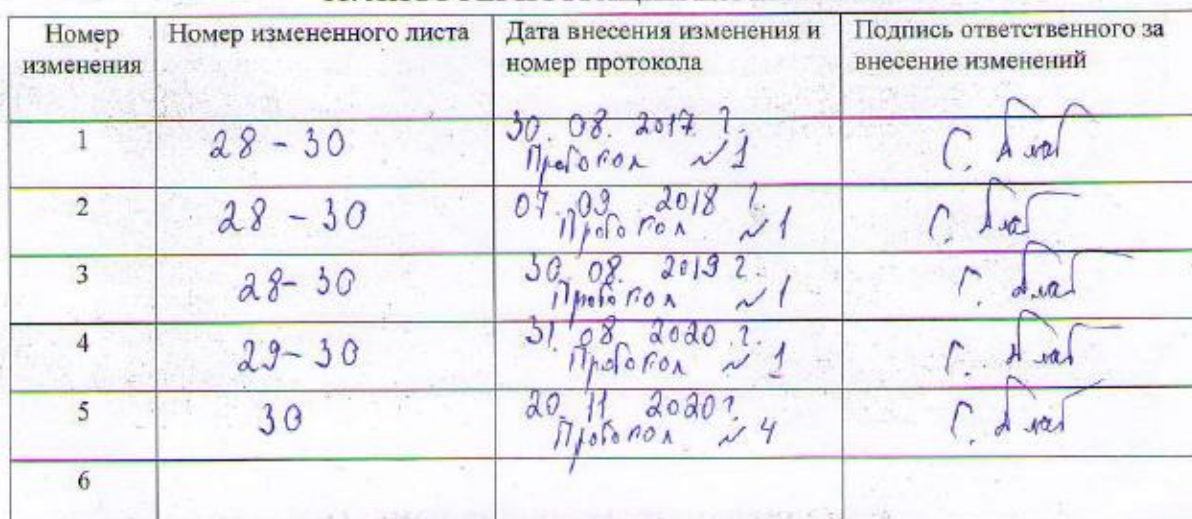 Номер изменения
Номер измененного листа
Дата внесения изменения и номер протокола
Подпись ответственного за внесение изменений
1
28 - 30
30. 08. 2017 г.
Протокол №1
2
28 - 30
07. 09. 2018 г.
Протокол №1
3
28 - 30
30. 08. 2019 г.
Протокол №1
4
29 - 30
31. 08 2020 г.
Протокол №1
5
30
20. 11 2020 г.
Протокол №4
6